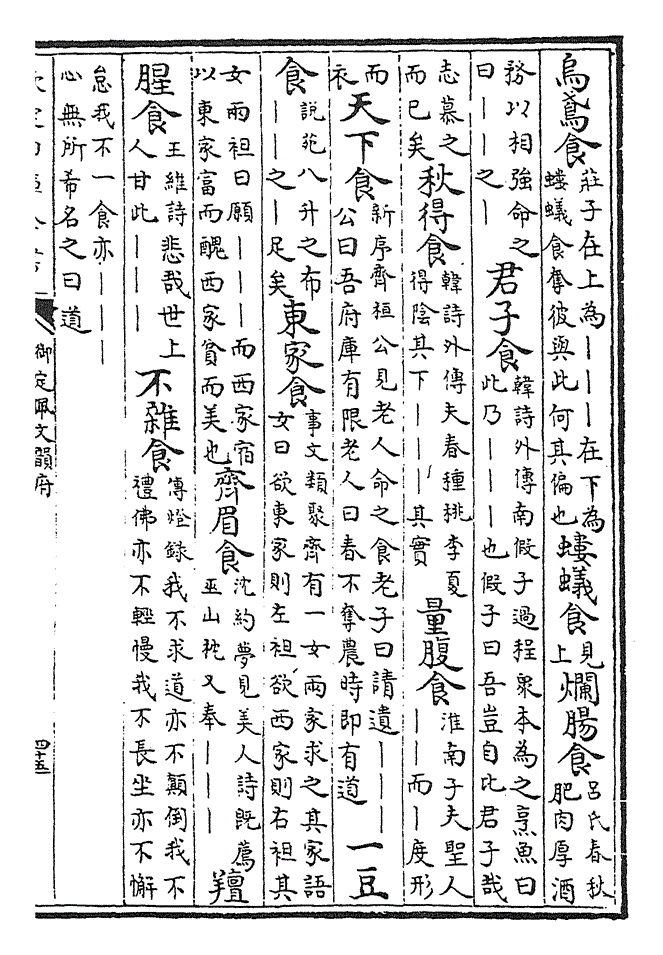 烏鳶食 莊子在上為｜｜｜在下為螻蟻食奪彼與此何其偏也 螻蟻食 見上 爛腸食 呂氏春秋肥肉厚酒
務以相強命之曰｜｜之｜ 君子食 韓詩外傳南假子過程衆本為之烹魚曰此乃｜｜｜也假子曰吾豈自比君子哉
志慕之而已矣 秋得食 韓詩外傳夫春種桃李夏得陰其下｜｜｜其實 量腹食 淮南子夫聖人｜｜而｜度形
而衣 天下食 新序齊桓公見老人命之食老子曰請遺｜｜｜公曰吾府庫有限老人曰春不奪農時即有道 一豆
食 說苑八升之布｜｜之｜足矣 東家食 事文類聚齊有一女兩家求之其家語女曰欲東家則左袒欲西家則右袒其
女兩袒曰願｜｜｜而西家宿以東家富而醜西家貧而美也 齊眉食 沈約夢見美人詩既薦巫山枕又奉｜｜｜ 羶
腥食 王維詩悲哉世上人甘此｜｜｜ 不雜食 傳燈錄我不求道亦不顛倒我不禮佛亦不輕慢我不長坐亦不懈
怠我不一食亦｜｜｜心無所希名之曰道
御定佩文韻府
四十五